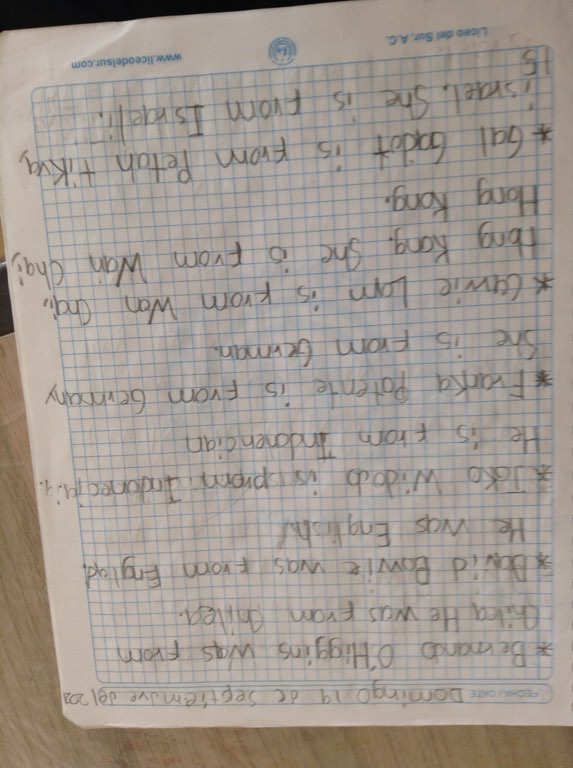 FECHA/DATE Domingo 19 de Septiemdve del 202
* Bernando O'Higgins was from
Chila He was from chilea.
* David Bowie was from Englad
He was English/
* Joko Widob is from Indonecia.
He is from Indonencian
* Franka Potente is from Germany
She is from German.
* Carrie Lam is from Wan Chai,
Hong Kong. She is from Wan Chai,
Hong Kong.
* Gal Gadot is from Petah tikva,
israel. She is from Israeli.
15
Liceo del Sur A.C.
www.liceodelsur.com